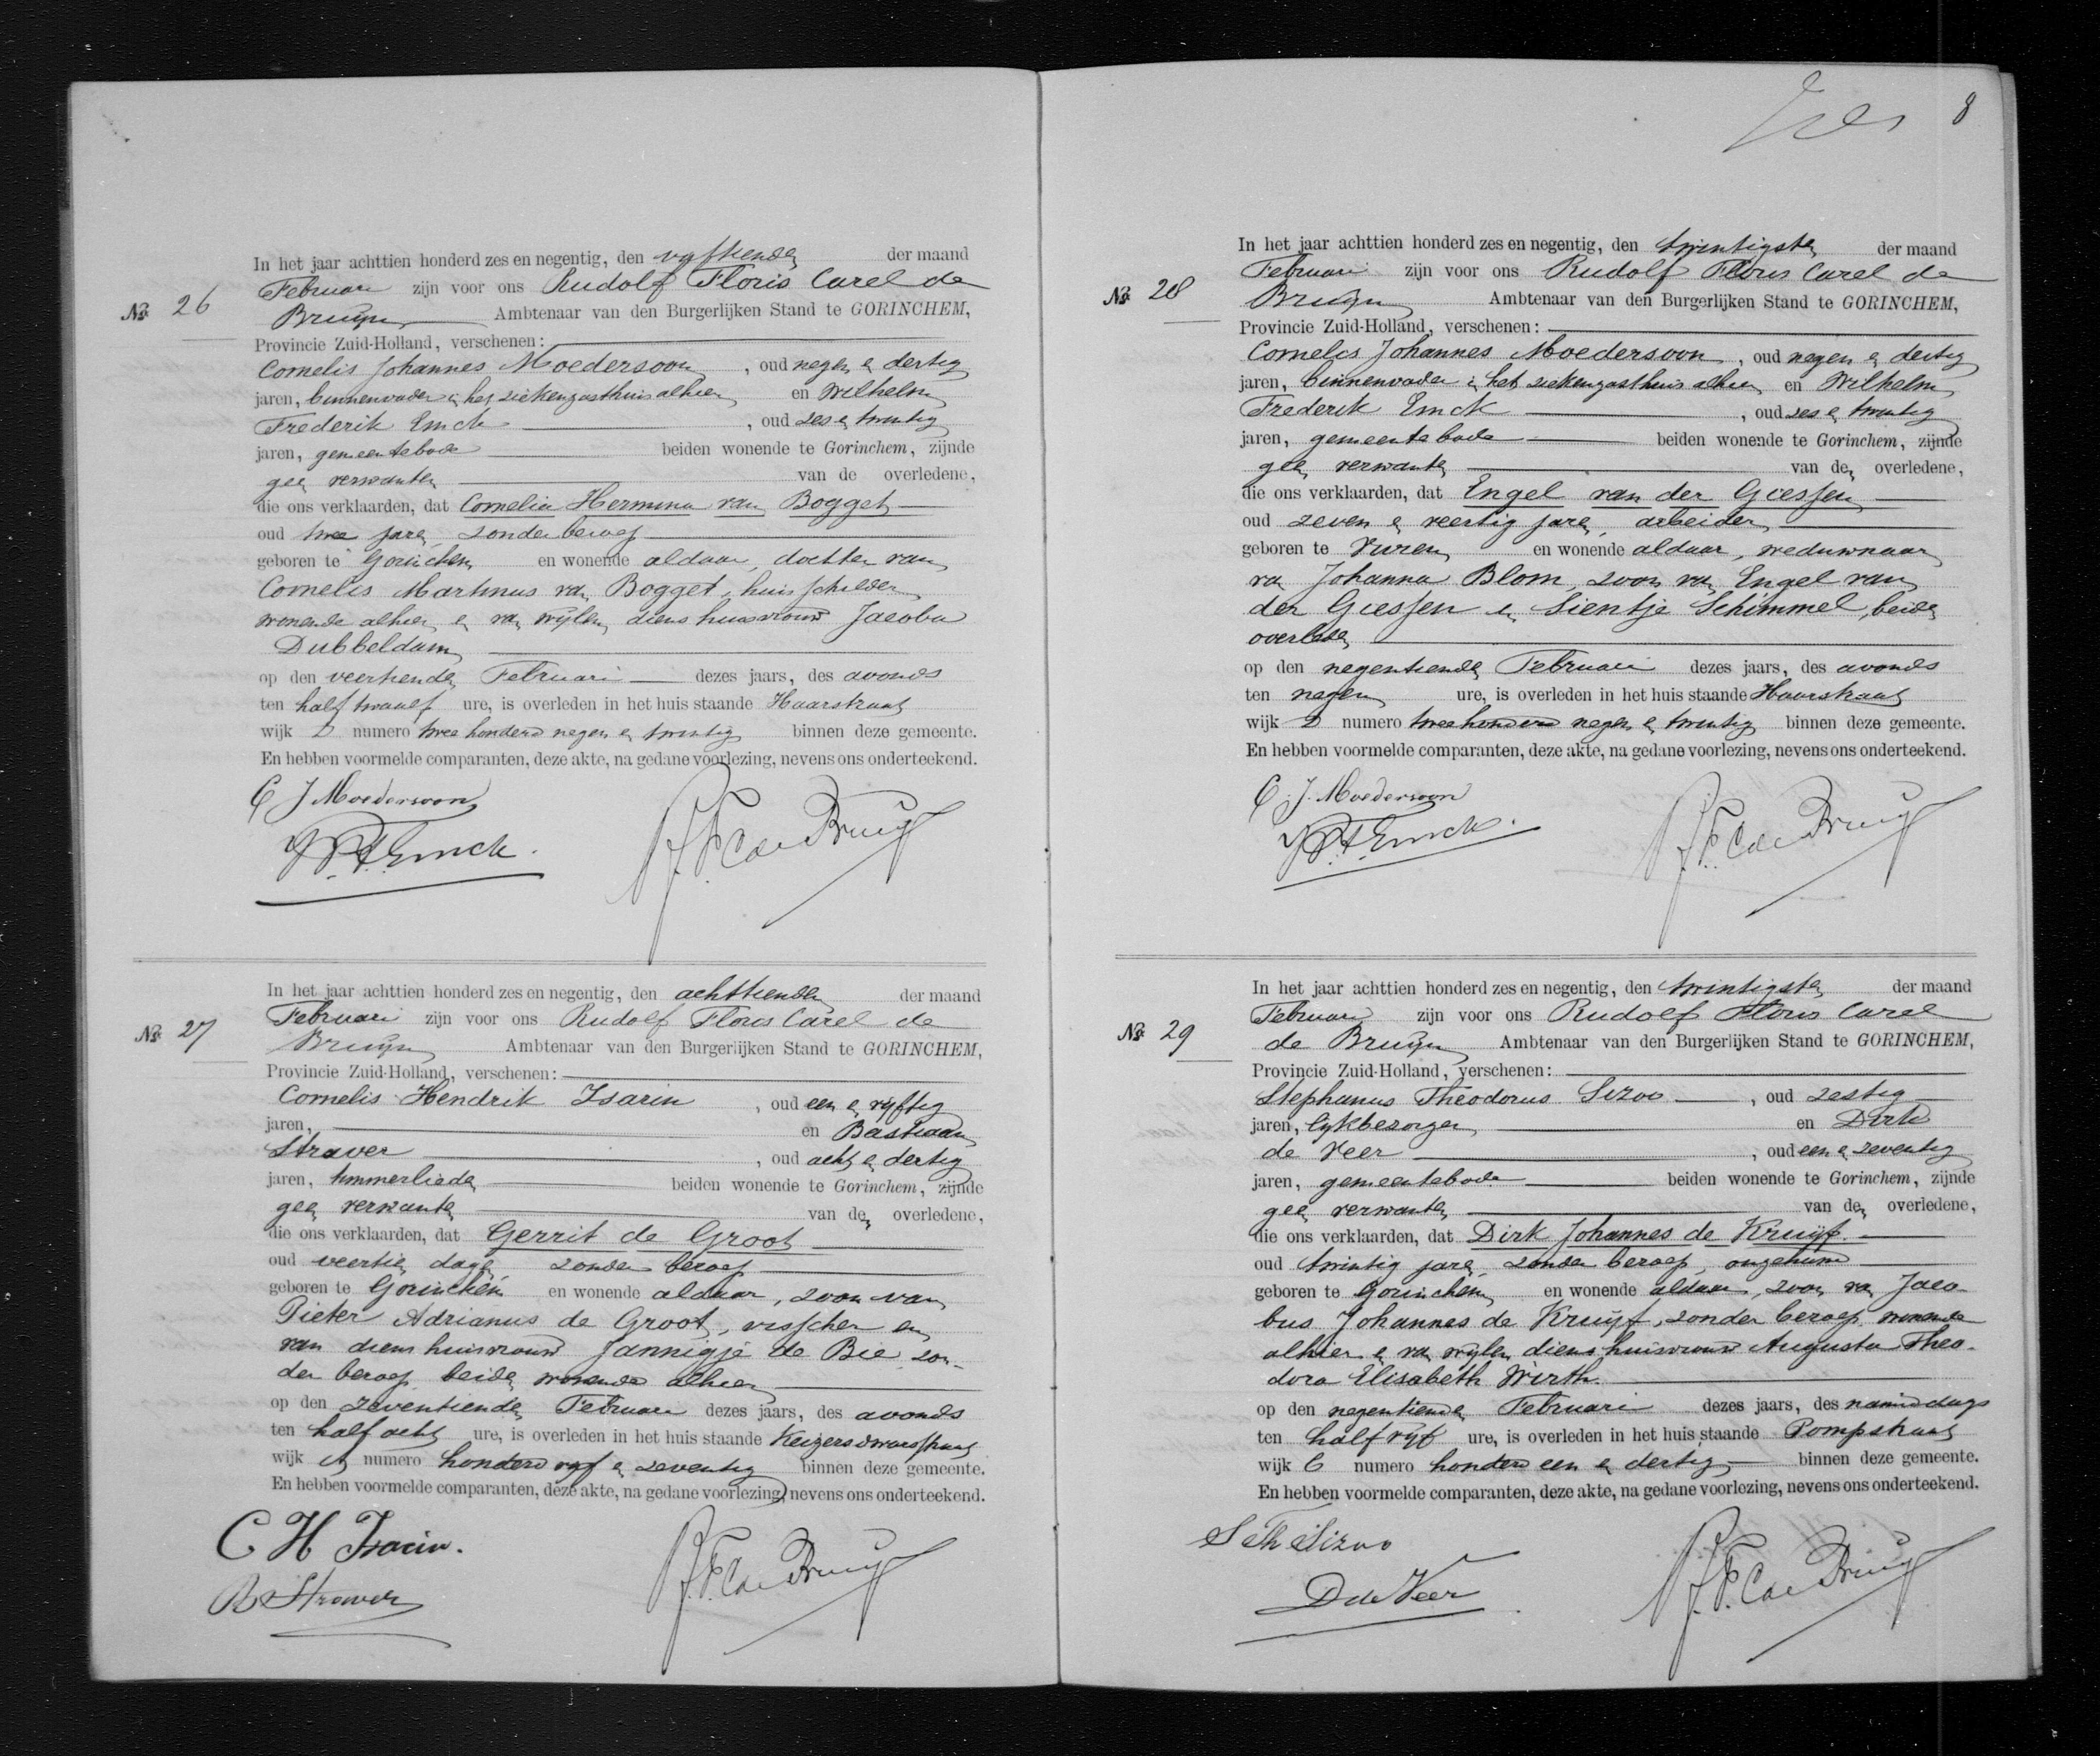 In het jaar achttien honderd zes en negentig, den vyftienden der maand
Februari zijn voor ons Rudolf Floris Carel de
No. 26
Bruÿn Ambtenaar van den Burgerlijken Stand te GORINCHEM,
Provincie Zuid-Holland, verschenen:
Cornelis Johannes Moedersoon, oud negen en dertig
jaren, binnenvader in het ziekengasthuis alhier en Wilhelm
Frederik Emck, oud zes en twintig
jaren, gemeentebode beiden wonende te Gorinchem, zijnde
geen verwanten van de overledene,
die ons verklaarden, dat Cornelia Hermina van Bogget
oud twee jaren, zonder beroep
geboren te Gorinchem en wonende aldaar, dochter van
Cornelis Martinus van Bogget, huisschilder
wonende alhier en van wijlen diens huisvrouw Jacoba
Dubbeldam
op den veertienden Februari dezes jaars, des avonds
ten half twaalf ure, is overleden in het huis staande Haarstraat
wijk D numero twee honderd negen en twintig binnen deze gemeente.
En hebben voormelde comparanten, deze akte, na gedane voorlezing, nevens ons onderteekend.
C J Moedersoon
W.F. Emck. R.F.C. de Bruÿn
In het jaar achttien honderd zes en negentig, den achttienden der maand
Februari zijn voor ons Rudolf Floris Carel de
No. 27
Bruÿn Ambtenaar van den Burgerlijken Stand te GORINCHEM,
Provincie Zuid-Holland, verschenen:
Cornelis Hendrik Isarin, oud een en vijftig
jaren, en Bastiaan
Straver, oud acht en dertig
jaren, timmerlieden beiden wonende te Gorinchem, zijnde
geen verwanten van den overledene,
die ons verklaarden, dat Gerrit de Groot
oud veertien dagen zonder beroep
geboren te Gorinchem en wonende aldaar, zoon van
Pieter Adrianus de Groot, visscher en
van diens huisvrouw Jannigje de Bie zon-
der beroep, beiden wonende alhier
op den zeventienden Februari dezes jaars, des avonds
ten half acht ure, is overleden in het huis staande Keizersdwarsstraat
wijk A numero honderd vyf en zeventig binnen deze gemeente.
En hebben voormelde comparanten, deze akte, na gedane voorlezing, nevens ons onderteekend.
C H Isarin.
B Straver R.F.C. de Bruÿn
8
In het jaar achttien honderd zes en negentig, den twintigsten der maand
Februari zijn voor ons Rudolf Floris Carel de
No. 28
Bruÿn Ambtenaar van den Burgerlijken Stand te GORINCHEM,
Provincie Zuid-Holland, verschenen:
Cornelis Johannes Moedersoon, oud negen en dertig
jaren, binnenvader in het ziekengasthuis alhier en Wilhelm
Frederik Emck, oud zes en twintig
jaren, gemeentebode beiden wonende te Gorinchem, zijnde
geen verwanten van den overledene,
die ons verklaarden, dat Engel van der Giessen
oud zeven en veertig jaren, arbeider
geboren te Vuren en wonende aldaar, weduwnaar
van Johanna Blom, zoon van Engel van
der Giessen en Sientje Schimmel, beiden
overleden
op den negentienden Februari dezes jaars, des avonds
ten negen ure, is overleden in het huis staande Haarstraat
wijk D numero twee honderd negen en twintig binnen deze gemeente.
En hebben voormelde comparanten, deze akte, na gedane voorlezing, nevens ons onderteekend.
C. J. Moedersoon
W.F. Emck. R.F.C. de Bruÿn
In het jaar achttien honderd zes en negentig, den twintigsten der maand
Februari zijn voor ons Rudolf Floris Carel
No. 29
de Bruÿn Ambtenaar van den Burgerlijken Stand te GORINCHEM,
Provincie Zuid-Holland, verschenen:
Stephanus Theodorus Sizoo, oud zestig
jaren, lykbezorger en Dirk
de Veer, oud een en zeventig
jaren, gemeentebode beiden wonende te Gorinchem, zijnde
geen verwanten van den overledene,
die ons verklaarden, dat Dirk Johannes de Kruÿf.
oud twintig jaren, zonder beroep, ongehuwd
geboren te Gorinchem en wonende aldaar, zoon van Jaco-
bus Johannes de Kruÿf, zonder beroep wonende
alhier en van wijlen diens huisvrouw Augusta Theo-
dora Elisabeth Wirth.
op den negentienden Februari dezes jaars, des namiddags
ten half vyf ure, is overleden in het huis staande Pompstraat
wijk C numero honderd een en dertig binnen deze gemeente.
En hebben voormelde comparanten, deze akte, na gedane voorlezing, nevens ons onderteekend.
S Th Sizoo
D de Veer R.F.C. de Bruÿn